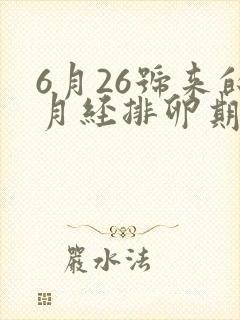 6月26號来的
月經排卵期
嚴水法